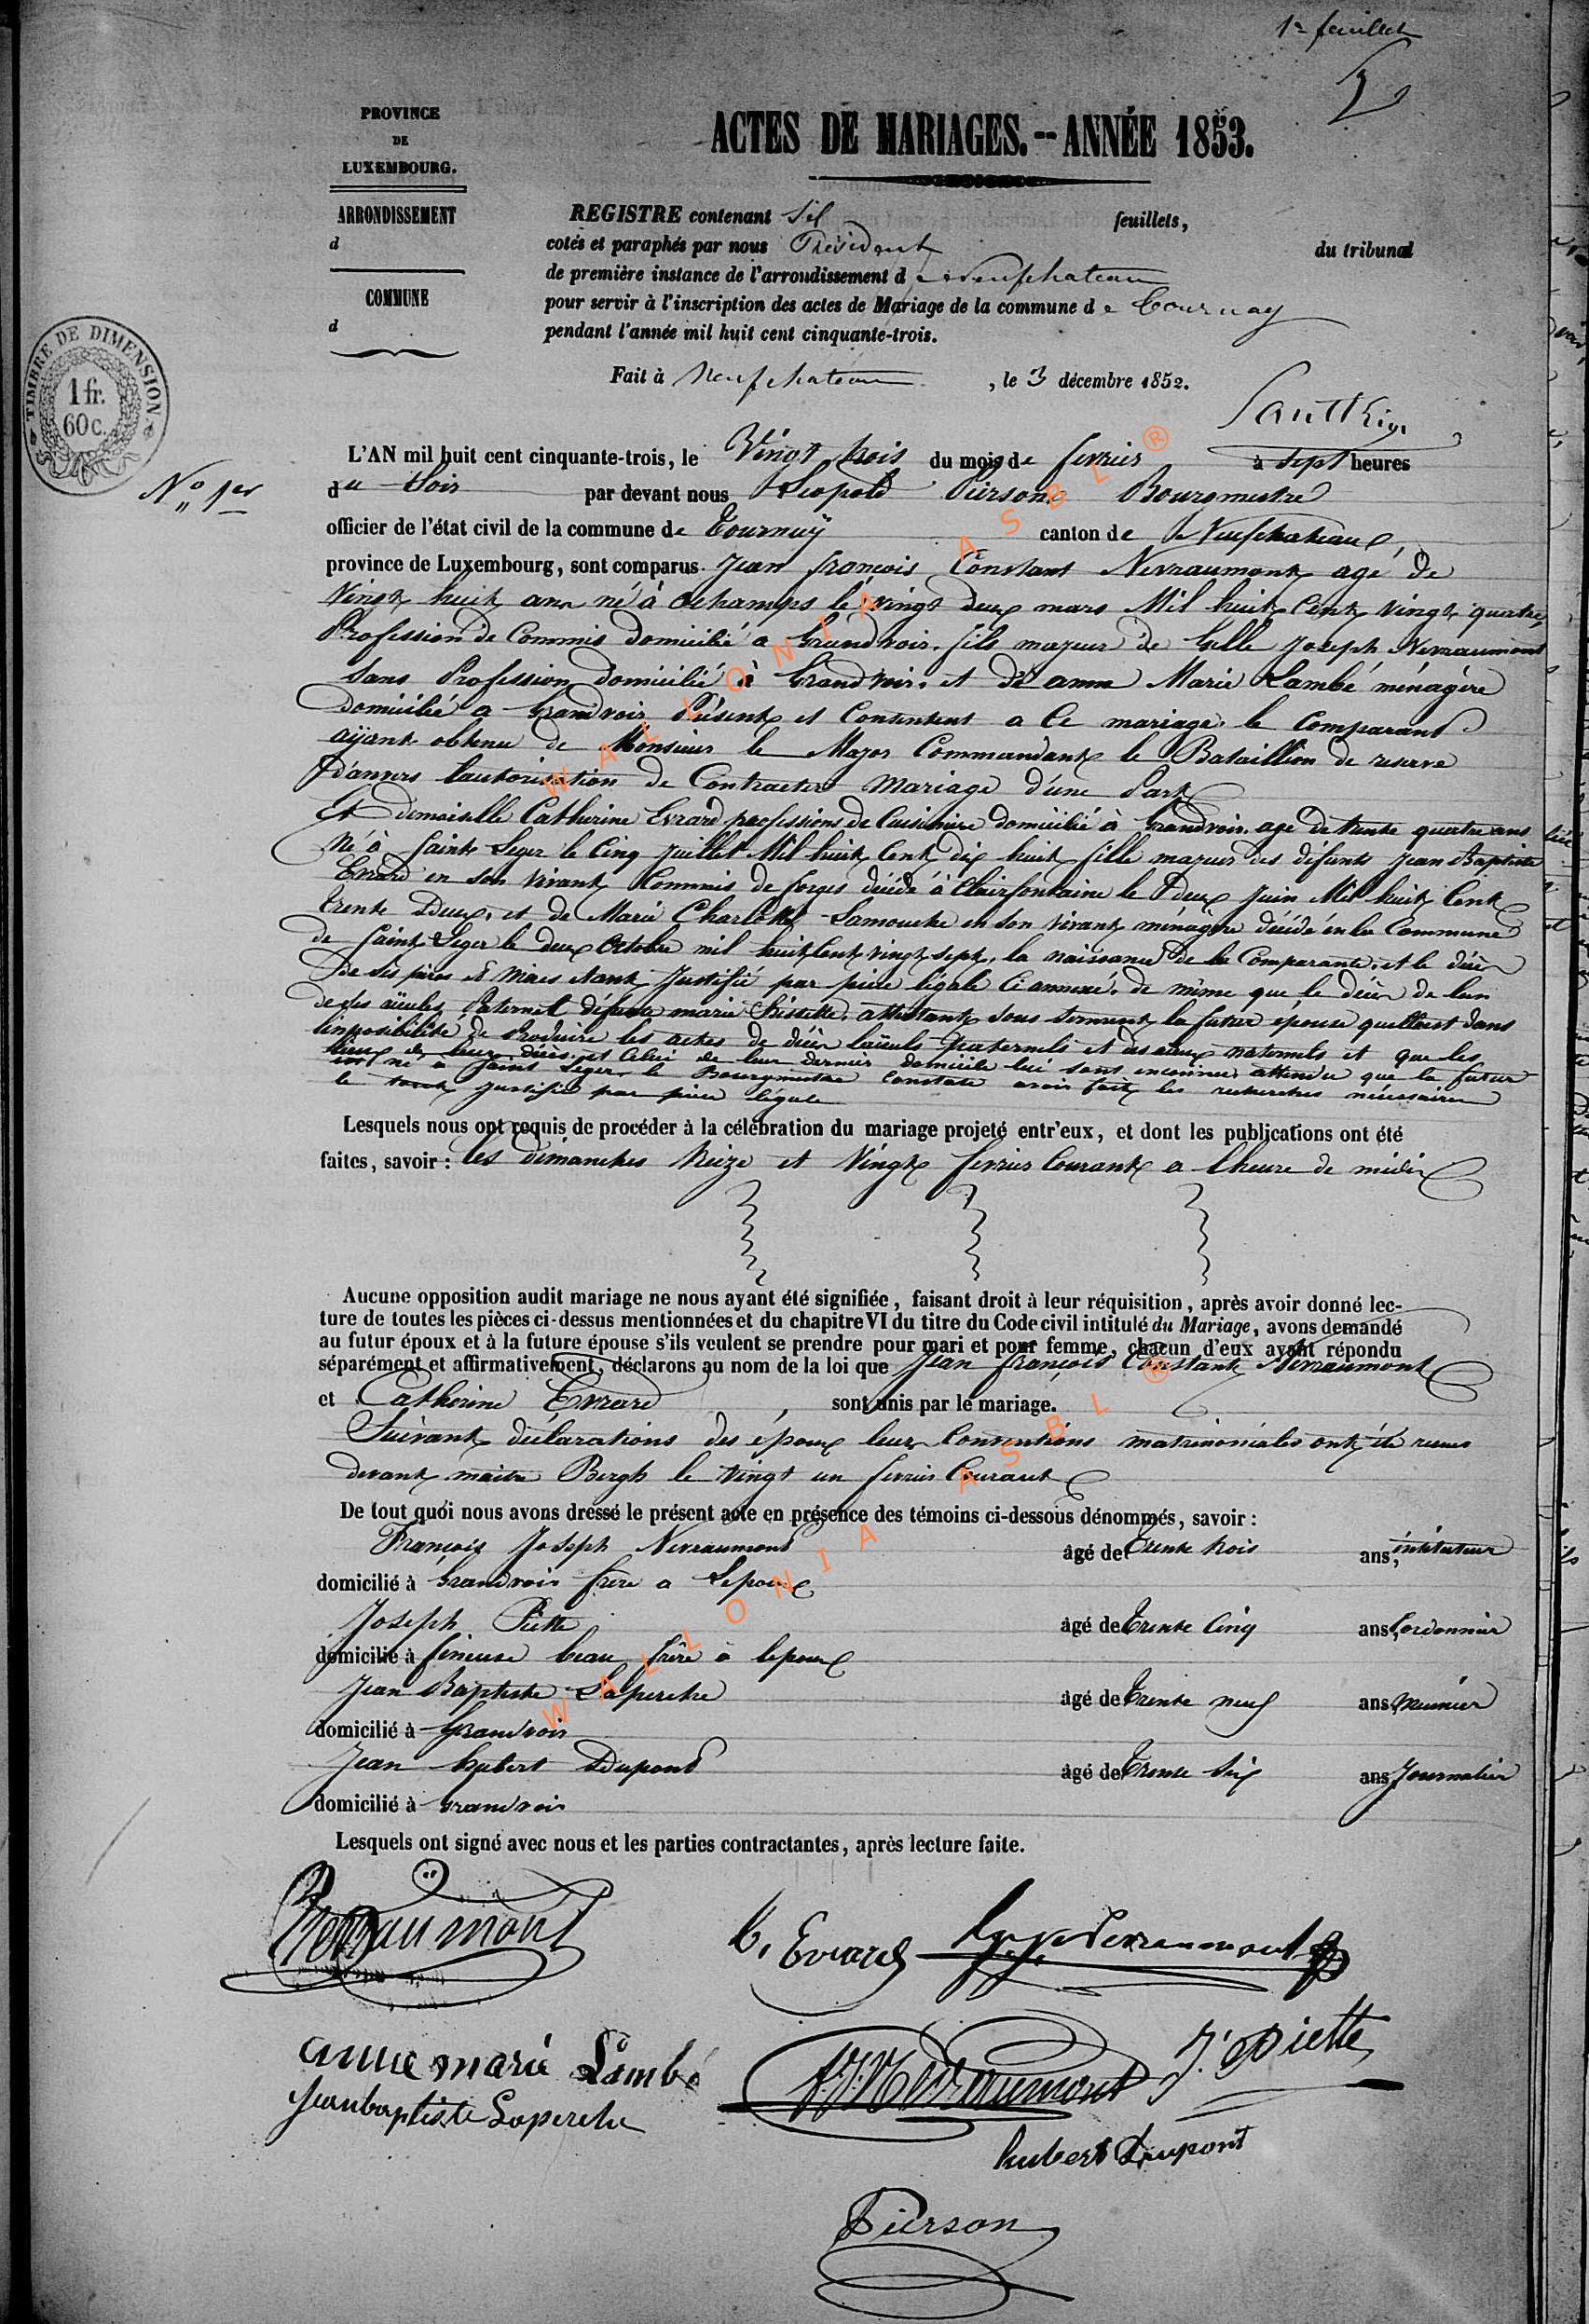 1er feuillet
PROVINCE
DE
LUXEMBOURG.
ARRONDISSEMENT
d
COMMUNE
d
ACTES DE MARIAGES.--ANNÉE 1853.
REGISTRE contenant feuillets,
cotés et paraphés par nous Président du tribunal
de première instance de l'arrondissement de Neufchateau
pour servir à l'inscription des actes de Mariage de la commune de Tournay
pendant l'année mil huit cent cinquante-trois.
Fait à Neufchateau, le 3 décembre 1852.
TIMBRE DE DIMENSION.
1 fr.
60 c.
N° 1er
L'AN mil huit cent cinquante-trois, le Vingt trois du mois de fevrier à sept heures
du Soir par devant nous Leopold Pierson Bourgmestre
officier de l'état civil de la commune de Tournay canton de Neufchateau,
province de Luxembourg, sont comparus Jean françois Constant Nevraumont agé de
Vingt huit ans né à Ochamps le vingt deux mars Mil huit Cent vingt quatre,
Profession de Commis domicilié a Grandvoir, fils majeur de Gille Joseph Nevraumont
Sans Profession domicilié à Grandvoir, et de anne Marie Lambé ménagère
domicilié a Grandvoir Présent et Consentent a Ce mariage, le Comparant
aÿant obtenu de Monsieur le Major Commandant le Bataillion de reserve
d'anvers lautorisation de Contracter Mariage d'une Part
Et demoiselle Catherine Evrard professions de Cuisinière domicilié à Grandvoir, age de trente quatre ans
Né à Saint Leger le Cinq Juillet Mil huit Cent dix huit fille majeur des défunts Jean Baptiste
Evrard en son vivant Commis de forges décédé à Clairfontaine le deux Juin Mil huit Cent
trente Deux, et de Marie Charlotte Lamouche en son vivant ménagère décédé en la Commune
de Saint Leger le deux Octobre mil huit Cent vingt sept, la naissance de la Comparante, et le décès
de Ses pères et Mères étant Justifié par pièce légale Ci annexé, de même que le décès de lun
de ses aüeules Paternel défunte marie, attestant Sous serment la futur épouse quelleest dans
limposibilité de Produire les actes de décès paternels et maternels et que les
lieux de leur décès, et Celui de leur dernier domicile lui sont inconnue, attendu que la futur
né a Saint Leger le Bourgmestre Constate avoir fait les recherches nécessaires
le tout Justifié par pièce légale
Lesquels nous ont requis de procéder à la célébration du mariage projeté entr'eux, et dont les publications ont été
faites, savoir : les dimanches treize et Vingt fevrier Courant a lheure de midi
Aucune opposition audit mariage ne nous ayant été signifiée, faisant droit à leur réquisition, après avoir donné lec-
ture de toutes les pièces ci-dessus mentionnées et du chapitre VI du titre du Code civil intitulé du Mariage, avons demandé
au futur époux et à la future épouse s'ils veulent se prendre pour mari et pour femme, chacun d'eux ayant répondu
séparément et affirmativement, déclarons au nom de la loi que Jean françois Constant Nevraumont
et Catherine Evrard, sont unis par le mariage.
Suivant déclarations des époux leur Conventions matrimoniales ont été reçues
devant maitre Bergh le vingt un fevrier Courant
De tout quoi nous avons dressé le présent acte en présence des témoins ci-dessous dénommés, savoir :
François Joseph Nevraumont âgé de Trente trois ans, instituteur
domicilié à Grandvoir frère a Lepoux
Joseph Piette âgé de Trente Cinq ans, Cordonnier
domicilié à fineuse beau frère a lepoux
Jean Baptiste Laperche âgé de Trente neuf ans, meunier
domicilié à Grandvoir
Jean hubert Dupont âgé de Trente Six ans, Journalier
domicilié à Grandvoir
Lesquels ont signé avec nous et les parties contractantes, après lecture faite.
Nevraumont
C. Evrard
g. j. Nevraumont
anne marie Lambé
f. J. Nevraumont
J. Piette
Jeanbaptiste Laperche
hubert Dupont
Pierson
WALLONIA ASBL ®
WALLONIA ASBL ®